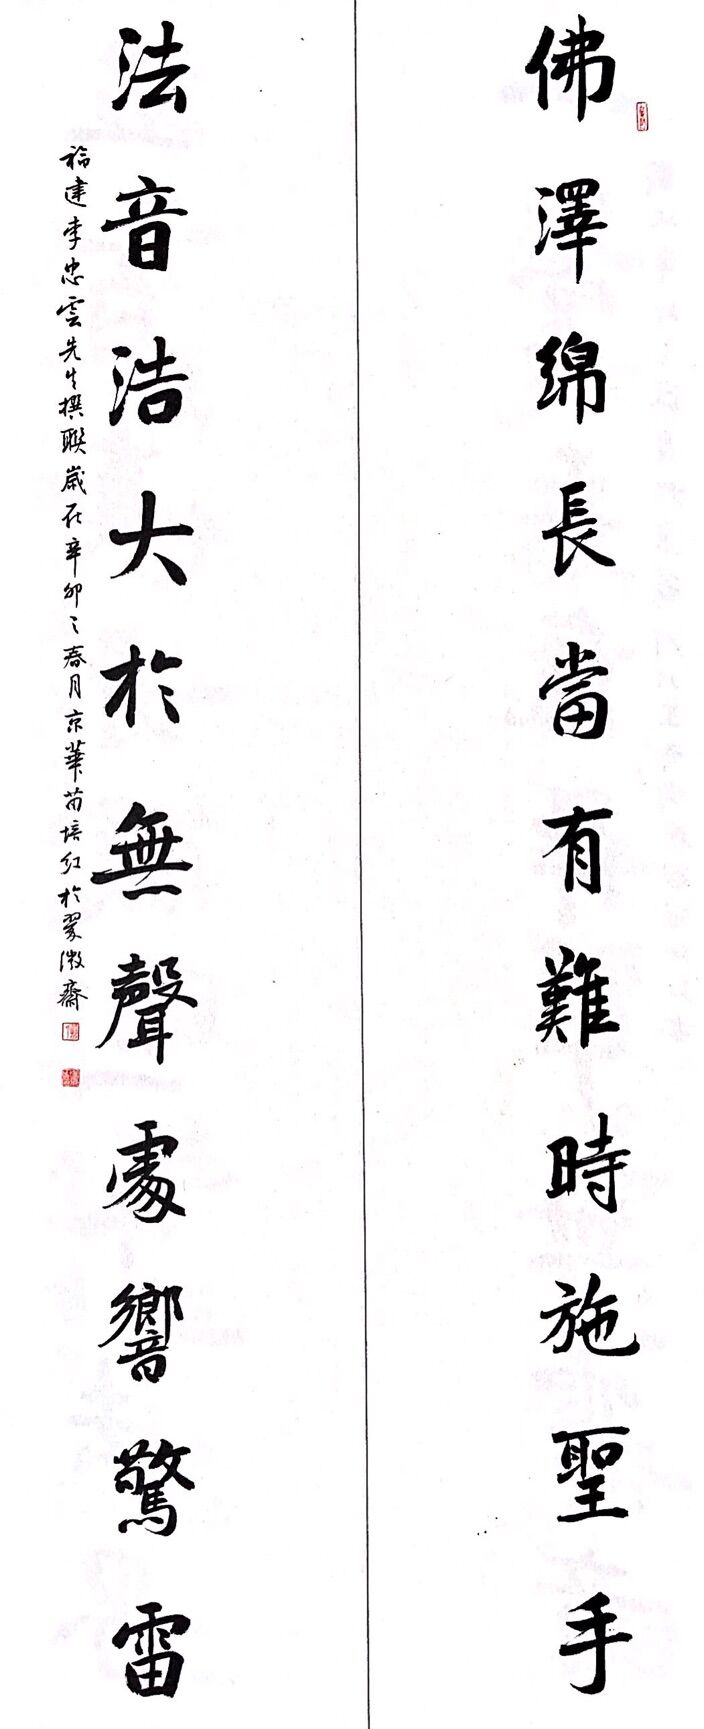 佛澤綿長當有難時施聖手
法音浩大於無聲處響驚雷
福建李忠雲先生撰聯歲在辛卯之春月京華苗培紅於翠微齋